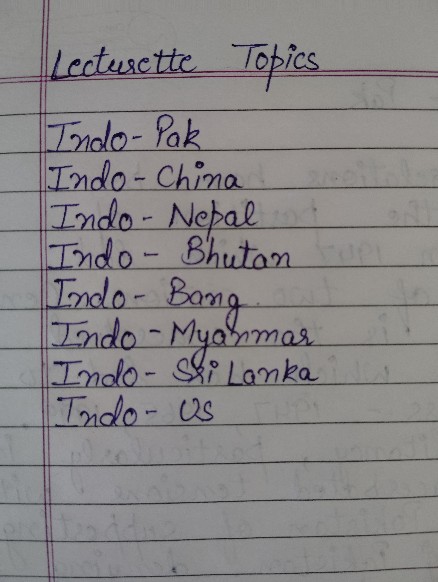 Lecturette Topics
Indo - Pak
Indo - China
Indo - Nepal
Indo - Bhutan
Indo - Bang.
Indo - Myanmar
Indo - Sri Lanka
Indo - US